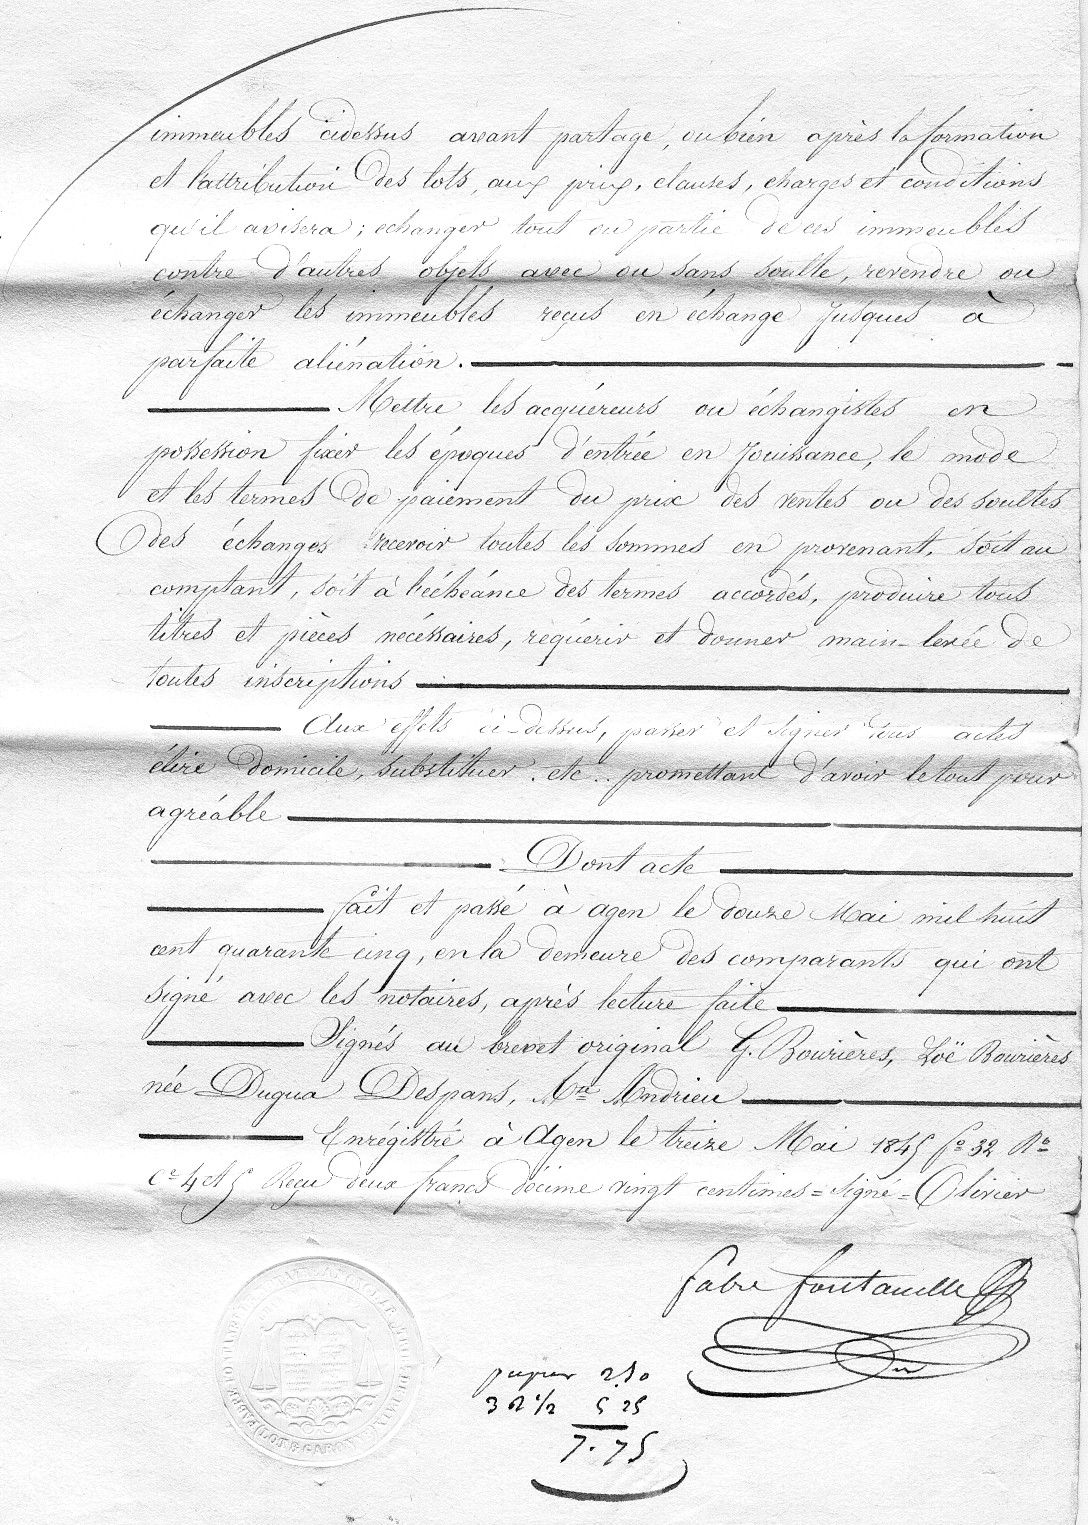 immeubles cidessus avant partage, ou bien après la formation
et l'attribution des lots, aux prix, clauses, charges et conditions
qu'il avisera ; echanger tout ou partie de ces immeubles
contre d'autres objets avec ou sans soulte, revendre ou
échanger les immeubles reçus en échange jusques à
parfaite aliénation.
Mettre les acquéreurs ou échangistes en
possession fixer les époques d'entrée en jouissance, le mode
et les termes de paiement du prix des ventes ou des soultes
des échanges recevoir toutes les sommes en provenant, soit au
comptant, soit à l'échéance des termes accordés, produire tous
titres et pièces nécéssaires, réquérir et donner main-levée de
toutes inscriptions
Aux effets ci-dessus, passer et signer tous actes
élire domicile, substituer. etc.. promettant d'avoir le tout pour
agréable
Dont acte
fait et passé à agen le douze Mai mil huit
cent quarante cinq, en la demeure des comparants qui ont
signé avec les notaires, après lecture faite
Signés au brevet original G. Bourières, Zoë Bourières
née Dugua Despans, Andrieu
Enrégistré à Agen le treize Mai 1845 f° 32 R°
Ce 4 et 5 Reçu deux francs décime vingt centimes = signé = Olivier
fabre fontanelle
papier 2.50
5 25
7.75
LOT & GARONNE